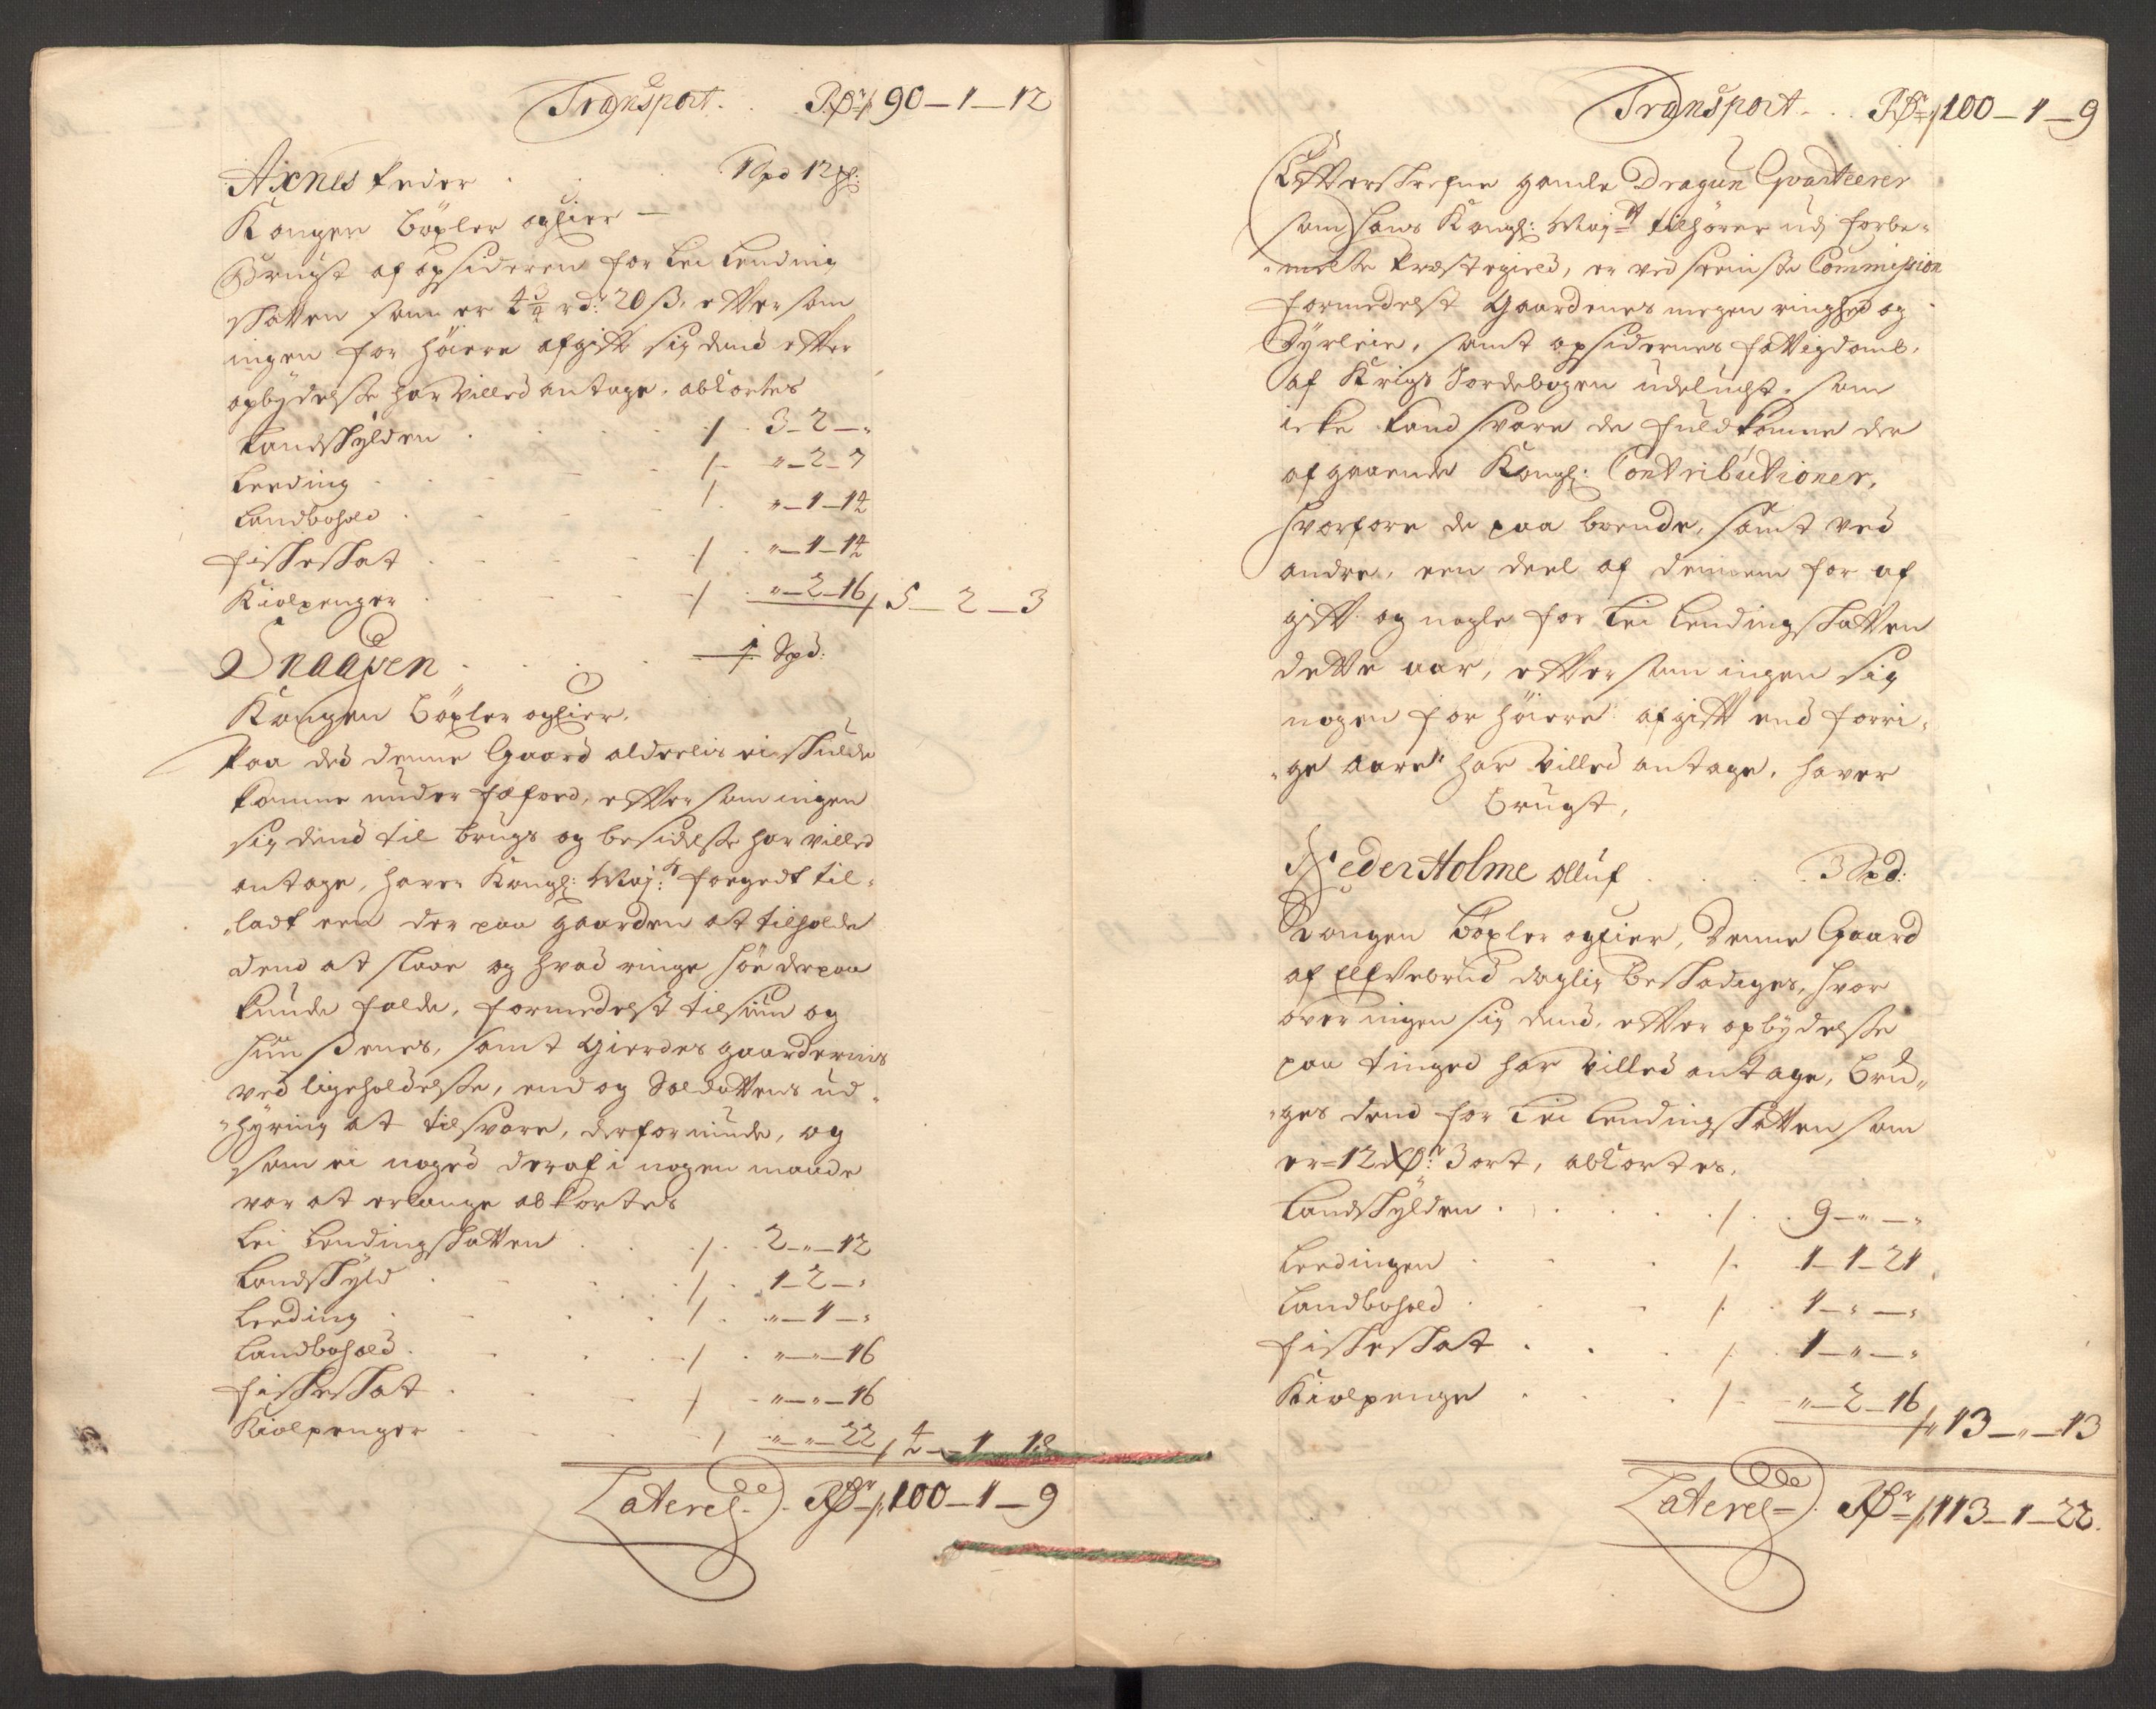 Transport . . Rdr/. 90 – 1 – 12
Axnes Peder . . . 1 Spd 12 ℔:
Kongen böxler og eier –
Brugt af opsideren for Lei Lending
skatten som er 4¾ rd: 20 ß, efftersom
ingen for höiere afgifft sig dend effter
opbydelse har villed antage, abkortes
Landskylden . . . /. 3 – 2 – "
Leeding . . . /. " – 2 – 7
Landbohold . . . /. " – 1 – 14
Fiskeskat . . . /. " – 1 – 14
Kiolpenger . . . /. " – 2 – 16 /. 5 – 2 – 3
Snaaven . . . 1 Spd:
Kongen böxler og eier.
Paa det denne Gaard alderlis ei skulde
komme under , efftersom ingen
sig dend til brugs og besidelse har villed
antage, haver Kongl: May:t foged til-
ladt een der paa gaarden at tilholde
dend at slaae og hvad ringe höe derpaa
kunde falde, formedelst tilsiun og
hussenes, samt Gierdes gaardernis
ved ligeholdelse, end og Soldattens ud-
hyring at tilsvare, derforuinde, og
som ei noged deraf i nogen maade
var at erlange abkortes
Lei Lendingskatten . . /. 2 – " – 12
Landskyld . . . /. 1 – 2 – "
Leeding . . . /. " – 1 – "
Landbohold . . . /. " – " – 16
Fiskeskat . . . /. " – " – 16
Kiolpenger . . . /. " – " – 22 /. 4 – 1 – 18
Lateres . Rdr /. 100 – 1 – 9
Transport . . . Rdr /. 100 – 1 – 9
Effterskrefne gamle Dragun Qvarteerer
som hans Kongl: May:tt tilhörer udj forbe-
melte Præstegield, er ved seeniste Commission
formedelst Gaardenes megen ringhed og
Dyrleie, samt opsidernes fattigdomb,
af Krigs Jordebogen udelugt, som
icke kand svare de fuldkomne der
afgaaende Kongl: Contributioner,
hvorfore de paa boende, samt ved
andre, een deel af dennem for af
gifft og nogle for Lei Lendingskatten
dette aar, efftersom ingen sig
nogen for höiere afgifft end forri-
ge aare har villed antage, haver
brugt,
Neder Holme Olluf . . . 3 Spd:
Kongen böxler og eier, Denne Gaard
af Elffvebrud daglig beskadiges, hvor
over ingen sig dend, effter opbydelse
paa tinged har villed antage, bru-
ges dend for Lei Lendingskatten som
er 12 Rdr: 3 ort, abkortes.
Landskylden . . . /. 9 – " – "
Leedingen . . . /. 1 – 1 – 21
Landbohold . . . /. 1 – " – "
Fiskeskat . . . /. 1 – " – "
Kiolpenge . . . /. " – 2 – 16 /. 13 – " – 13
Lateres – . Rdr /. 113 – 1 – 22.